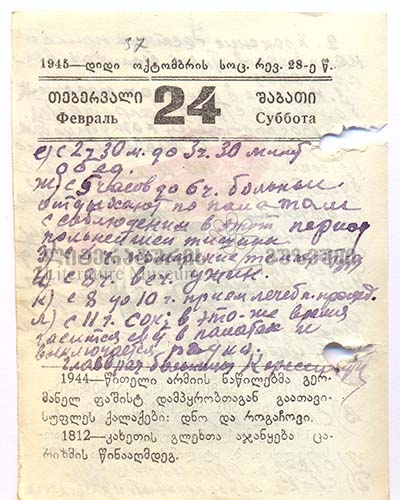 37
1945—დიდი ოქტომბრის სოც. რევ. 28-ე წ.
თებერვალი 24 შაბათი
Февраль Суббота
е) с 2 ч 30 м. до 3 ч. 30 минут
обед.
ж) с 5 часов до 6 ч. больные
отдыхают по палатам
с соблюдением в этот период
полнейшей тишины
Literature Museum
ужин.
к) с 8 до 10 г. прием лечебн. процед.
л) с 11 г. сон; в это-же время
гасится в палатах и
выключается радио.
главврач больницы
1944—წითელი არმიის ნაწილებმა გერ-
მანელ ფაშისტ დამპყრობთაგან გაათავი-
სუფლეს ქალაქები: დნო და როგაჩოვი.
1812—კახეთის გლეხთა აჯანყება ცა-
რიზმის წინააღმდეგ.